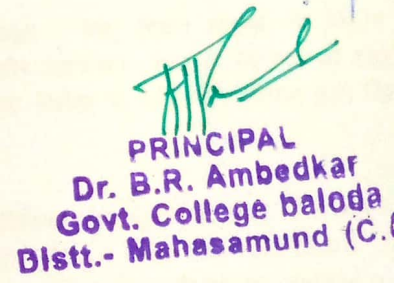 PRINCIPAL
Dr. B.R. Ambedkar
Govt. College baloda
Distt.- Mahasamund (C.